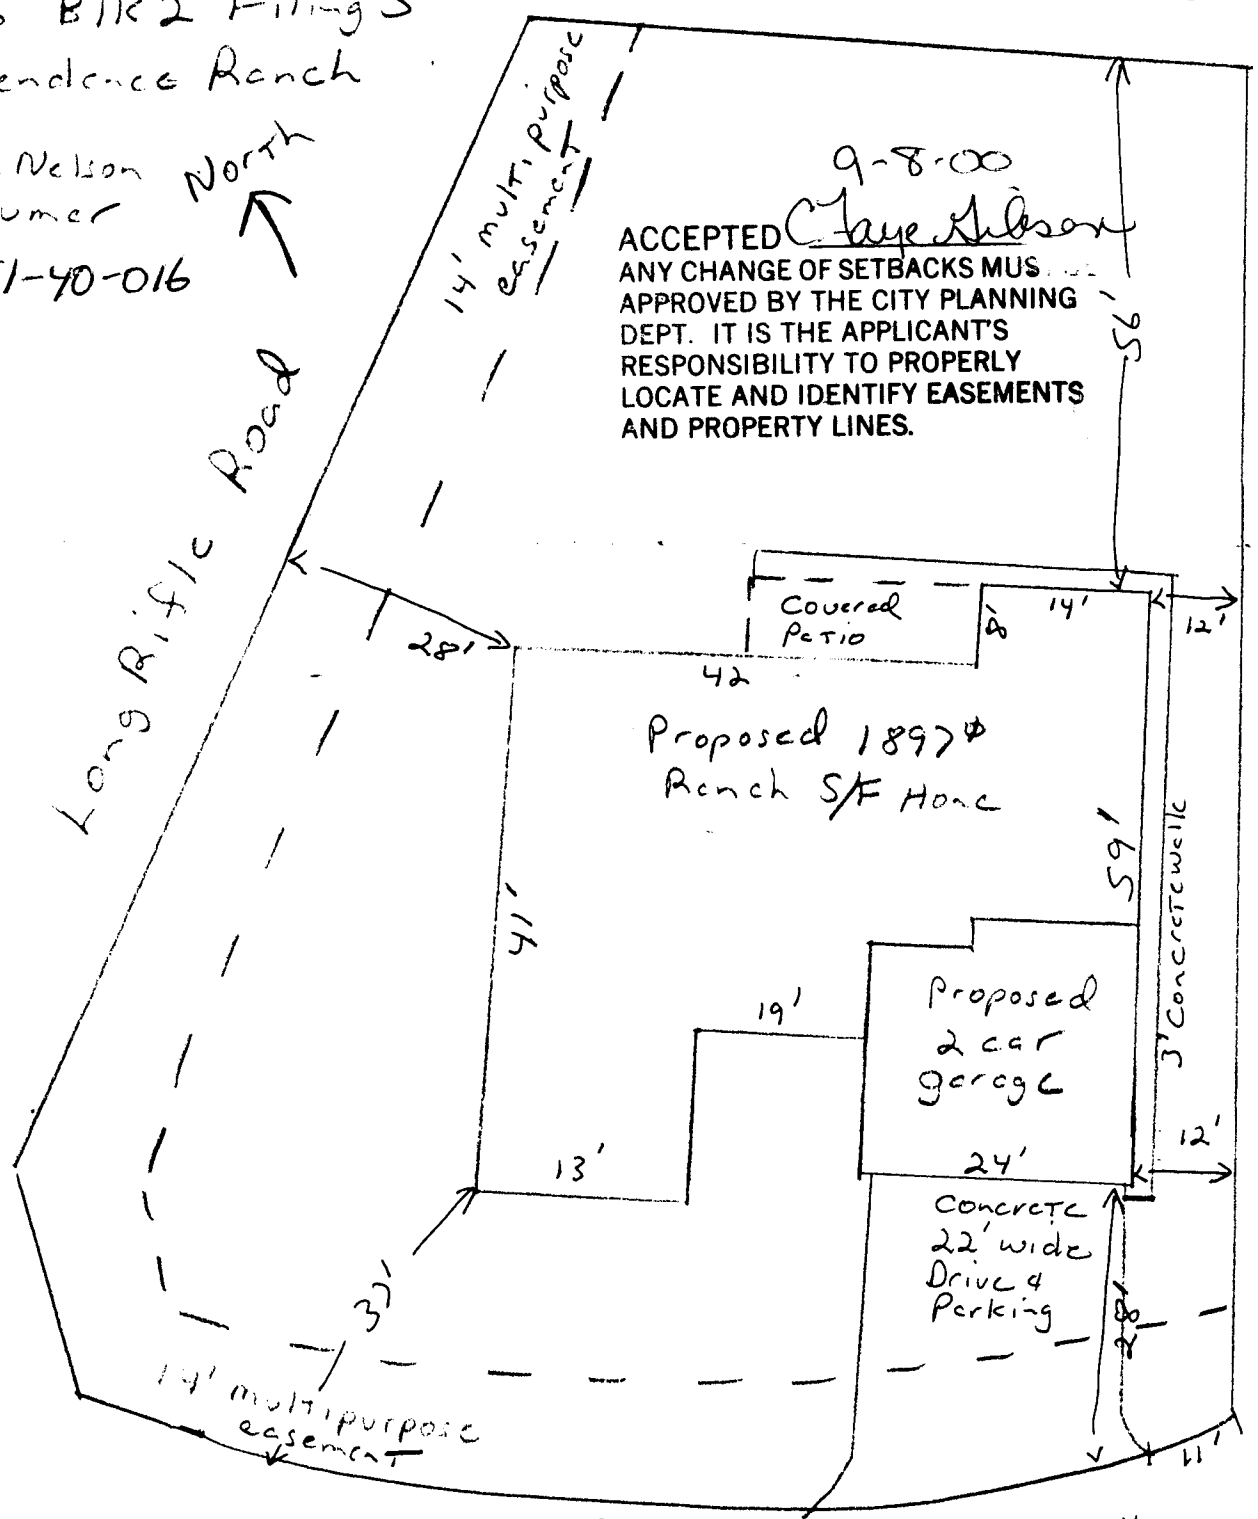 Blk 2 Filing 5
Ranch
Nelson
North
1-40-016
14' multi purpose
easement
9-8-00
ACCEPTED C Faye Gibson
ANY CHANGE OF SETBACKS MUS
APPROVED BY THE CITY PLANNING
DEPT. IT IS THE APPLICANT'S
RESPONSIBILITY TO PROPERLY
LOCATE AND IDENTIFY EASEMENTS
AND PROPERTY LINES.
56'
Long Rifle Road
Covered
Patio
14'
8'
12'
28'
42
Proposed 1897⌀
Ranch S/F Home
59'
3' Concrete walk
41'
19'
Proposed
2 car
garage
13'
24'
12'
Concrete
22' wide
Drive &
Parking
37'
28'
14' multipurpose
easement
11'